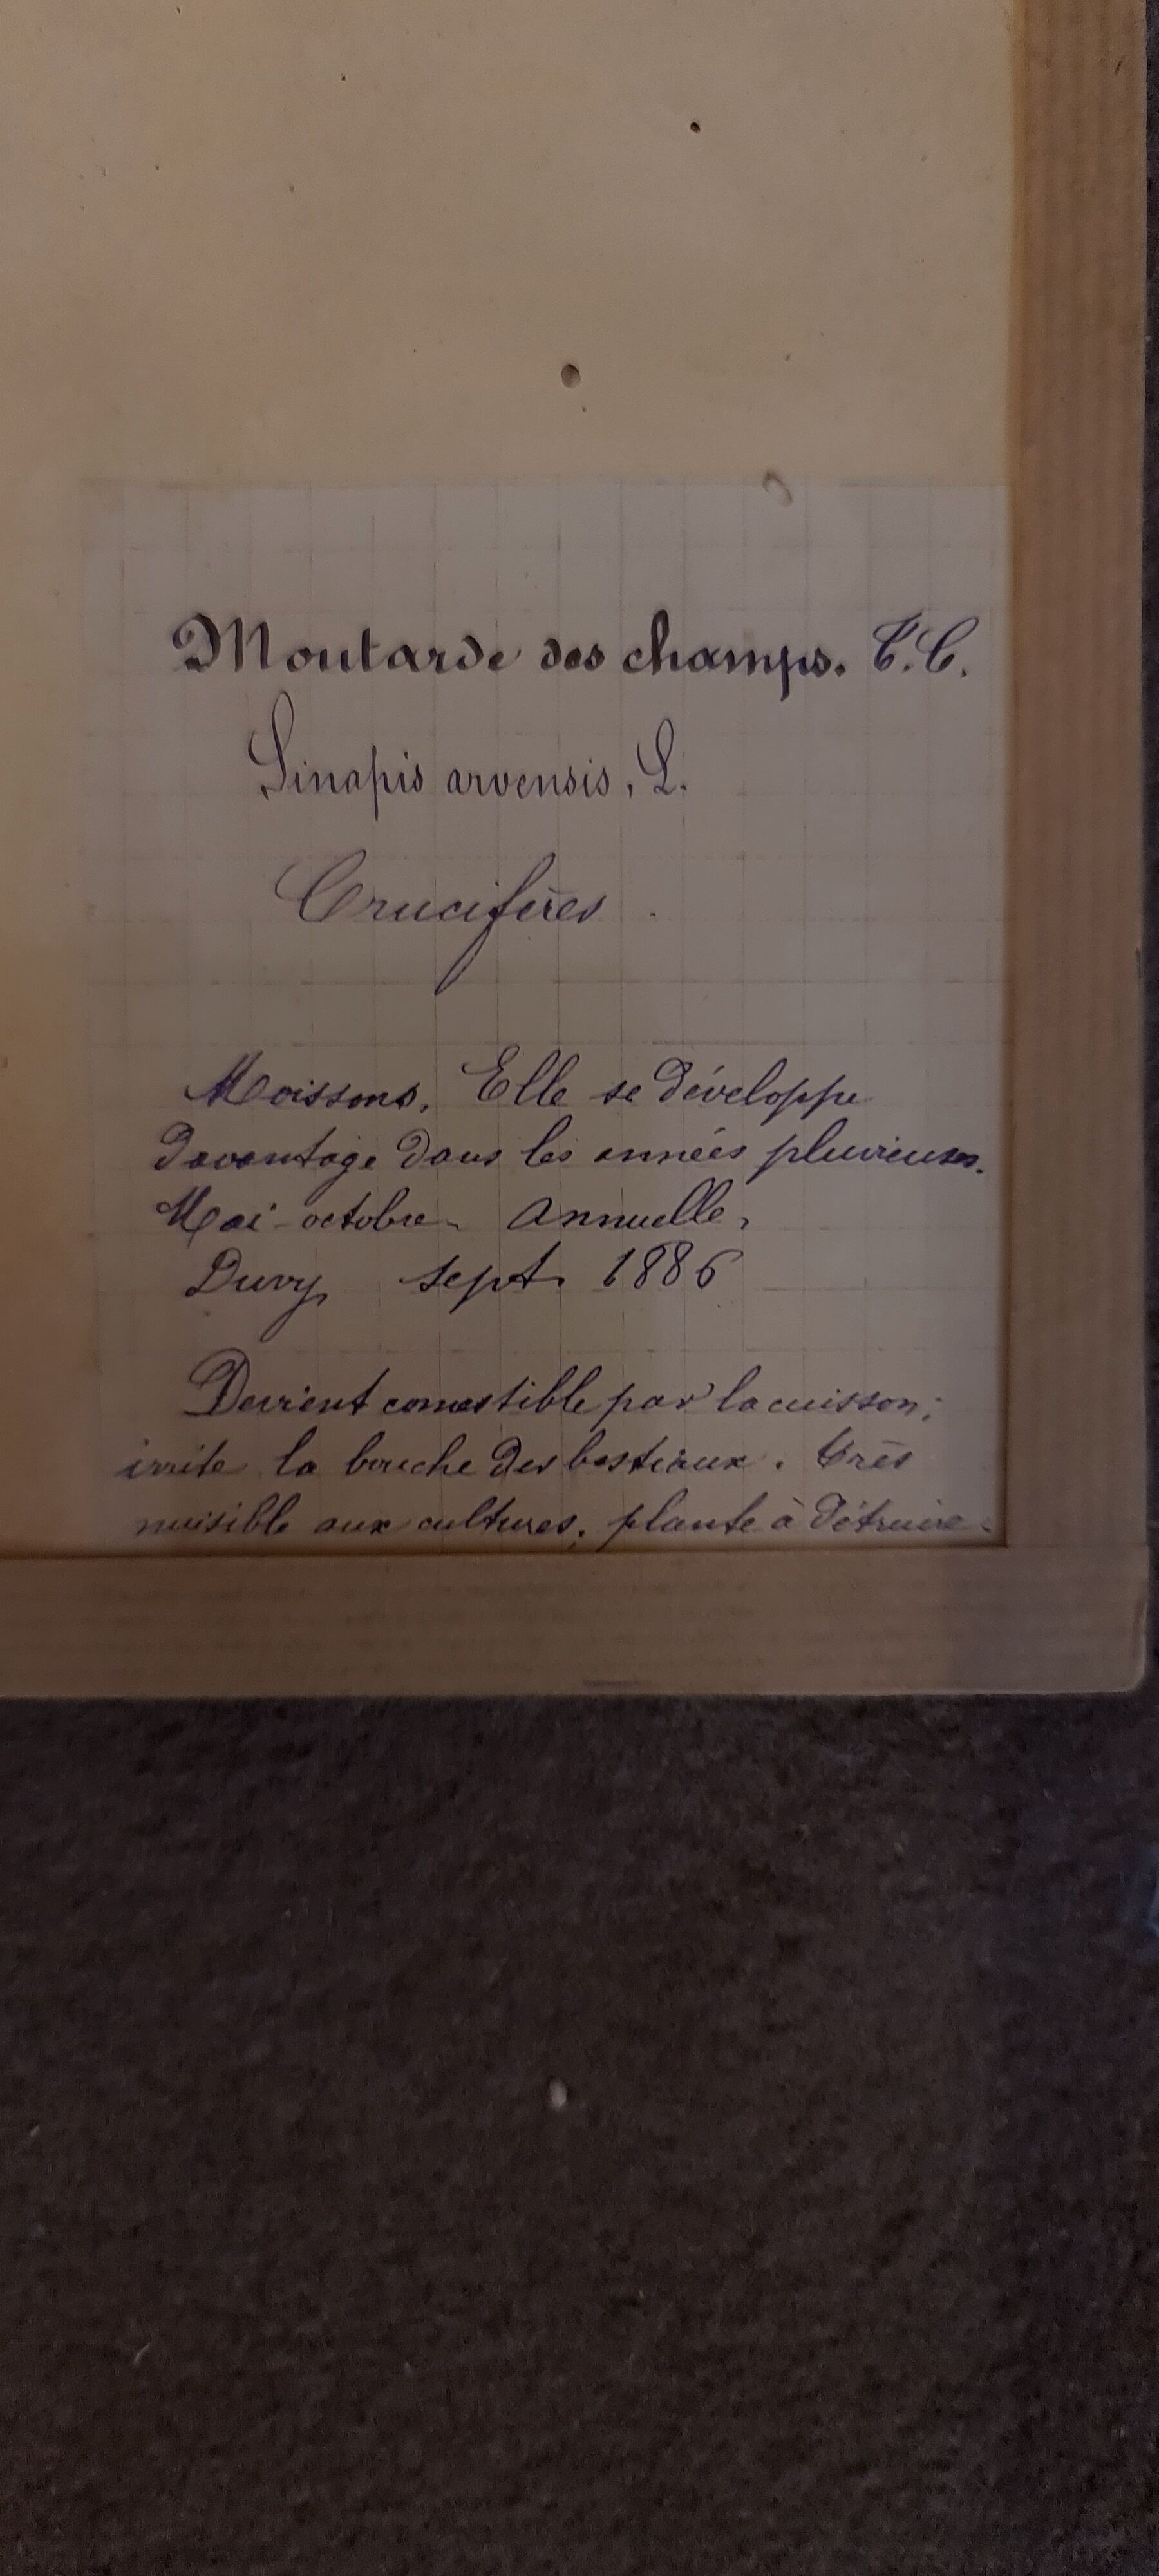 Moutarde des champs. T.C.
Sinapis arvensis, L.
Crucifères.
Moissons. Elle se développe
davantage dans les années pluvieuses.
Mai-octobre. Annuelle.
Duvy, sept. 1886
Devient comestible par la cuisson;
irrite la bouche des bestiaux. Très
nuisible aux cultures; plante à détruire.